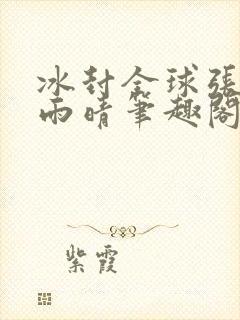 冰封全球張
雨晴筆趣閣
紫霞